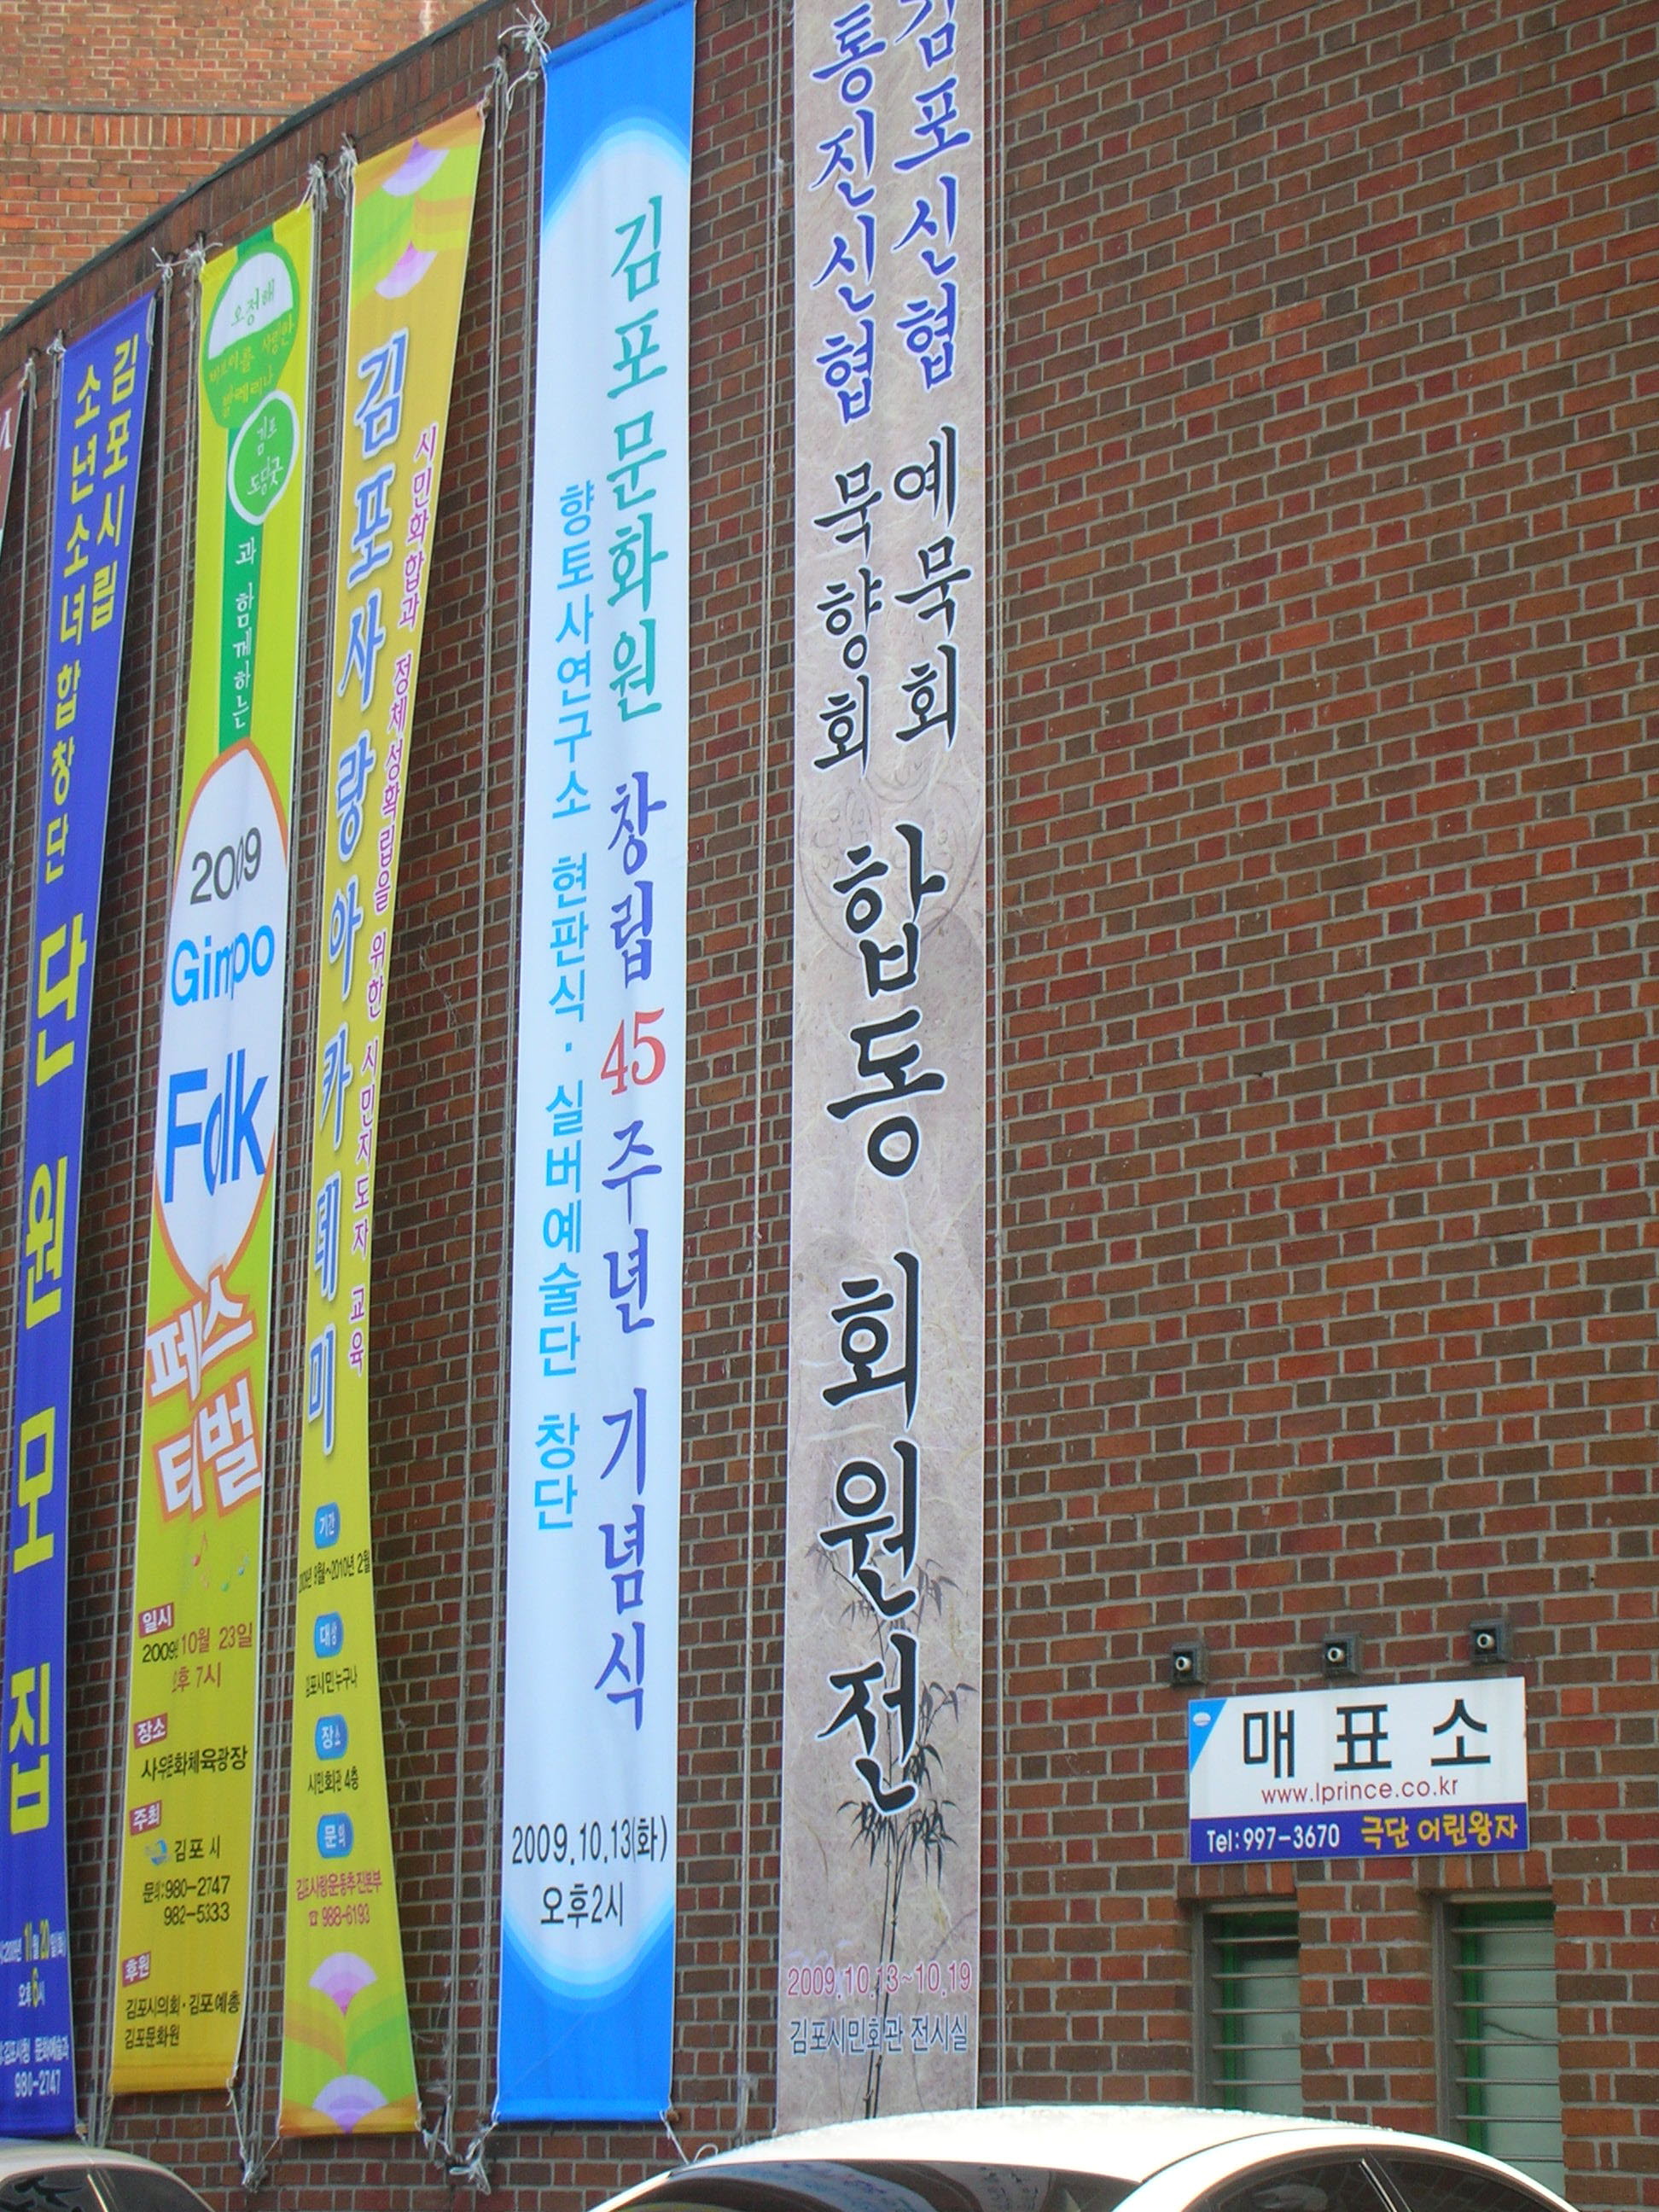 김포시립
소년소녀합창단 단원모집
오후6시
980-2747
오정해
발레리나
김포
도당굿
과 함께하는
2009
Gimpo
Folk
페스
티벌
일시
2009년 10월 23일
오후 7시
장소
사우문화체육광장
주최
김포시
문의:980-2747
982-5333
후원
김포시의회·김포예총
김포문화원
시민화합과 정체성확립을 위한 시민지도자 교육
김포사랑아카데미
기간
2009년 8월~2010년 2월
대상
김포시민 누구나
장소
시민회관 4층
문의
김포사랑운동추진본부
☎ 988-6193
김포문화원 창립 45 주년 기념식
향토사연구소 현판식·실버예술단 창단
2009.10.13(화)
오후2시
김포신협 예묵회
통진신협 묵향회
합동 회원전
2009.10.13~10.19
김포시민회관 전시실
매표소
www.lprince.co.kr
Tel:997-3670 극단 어린왕자